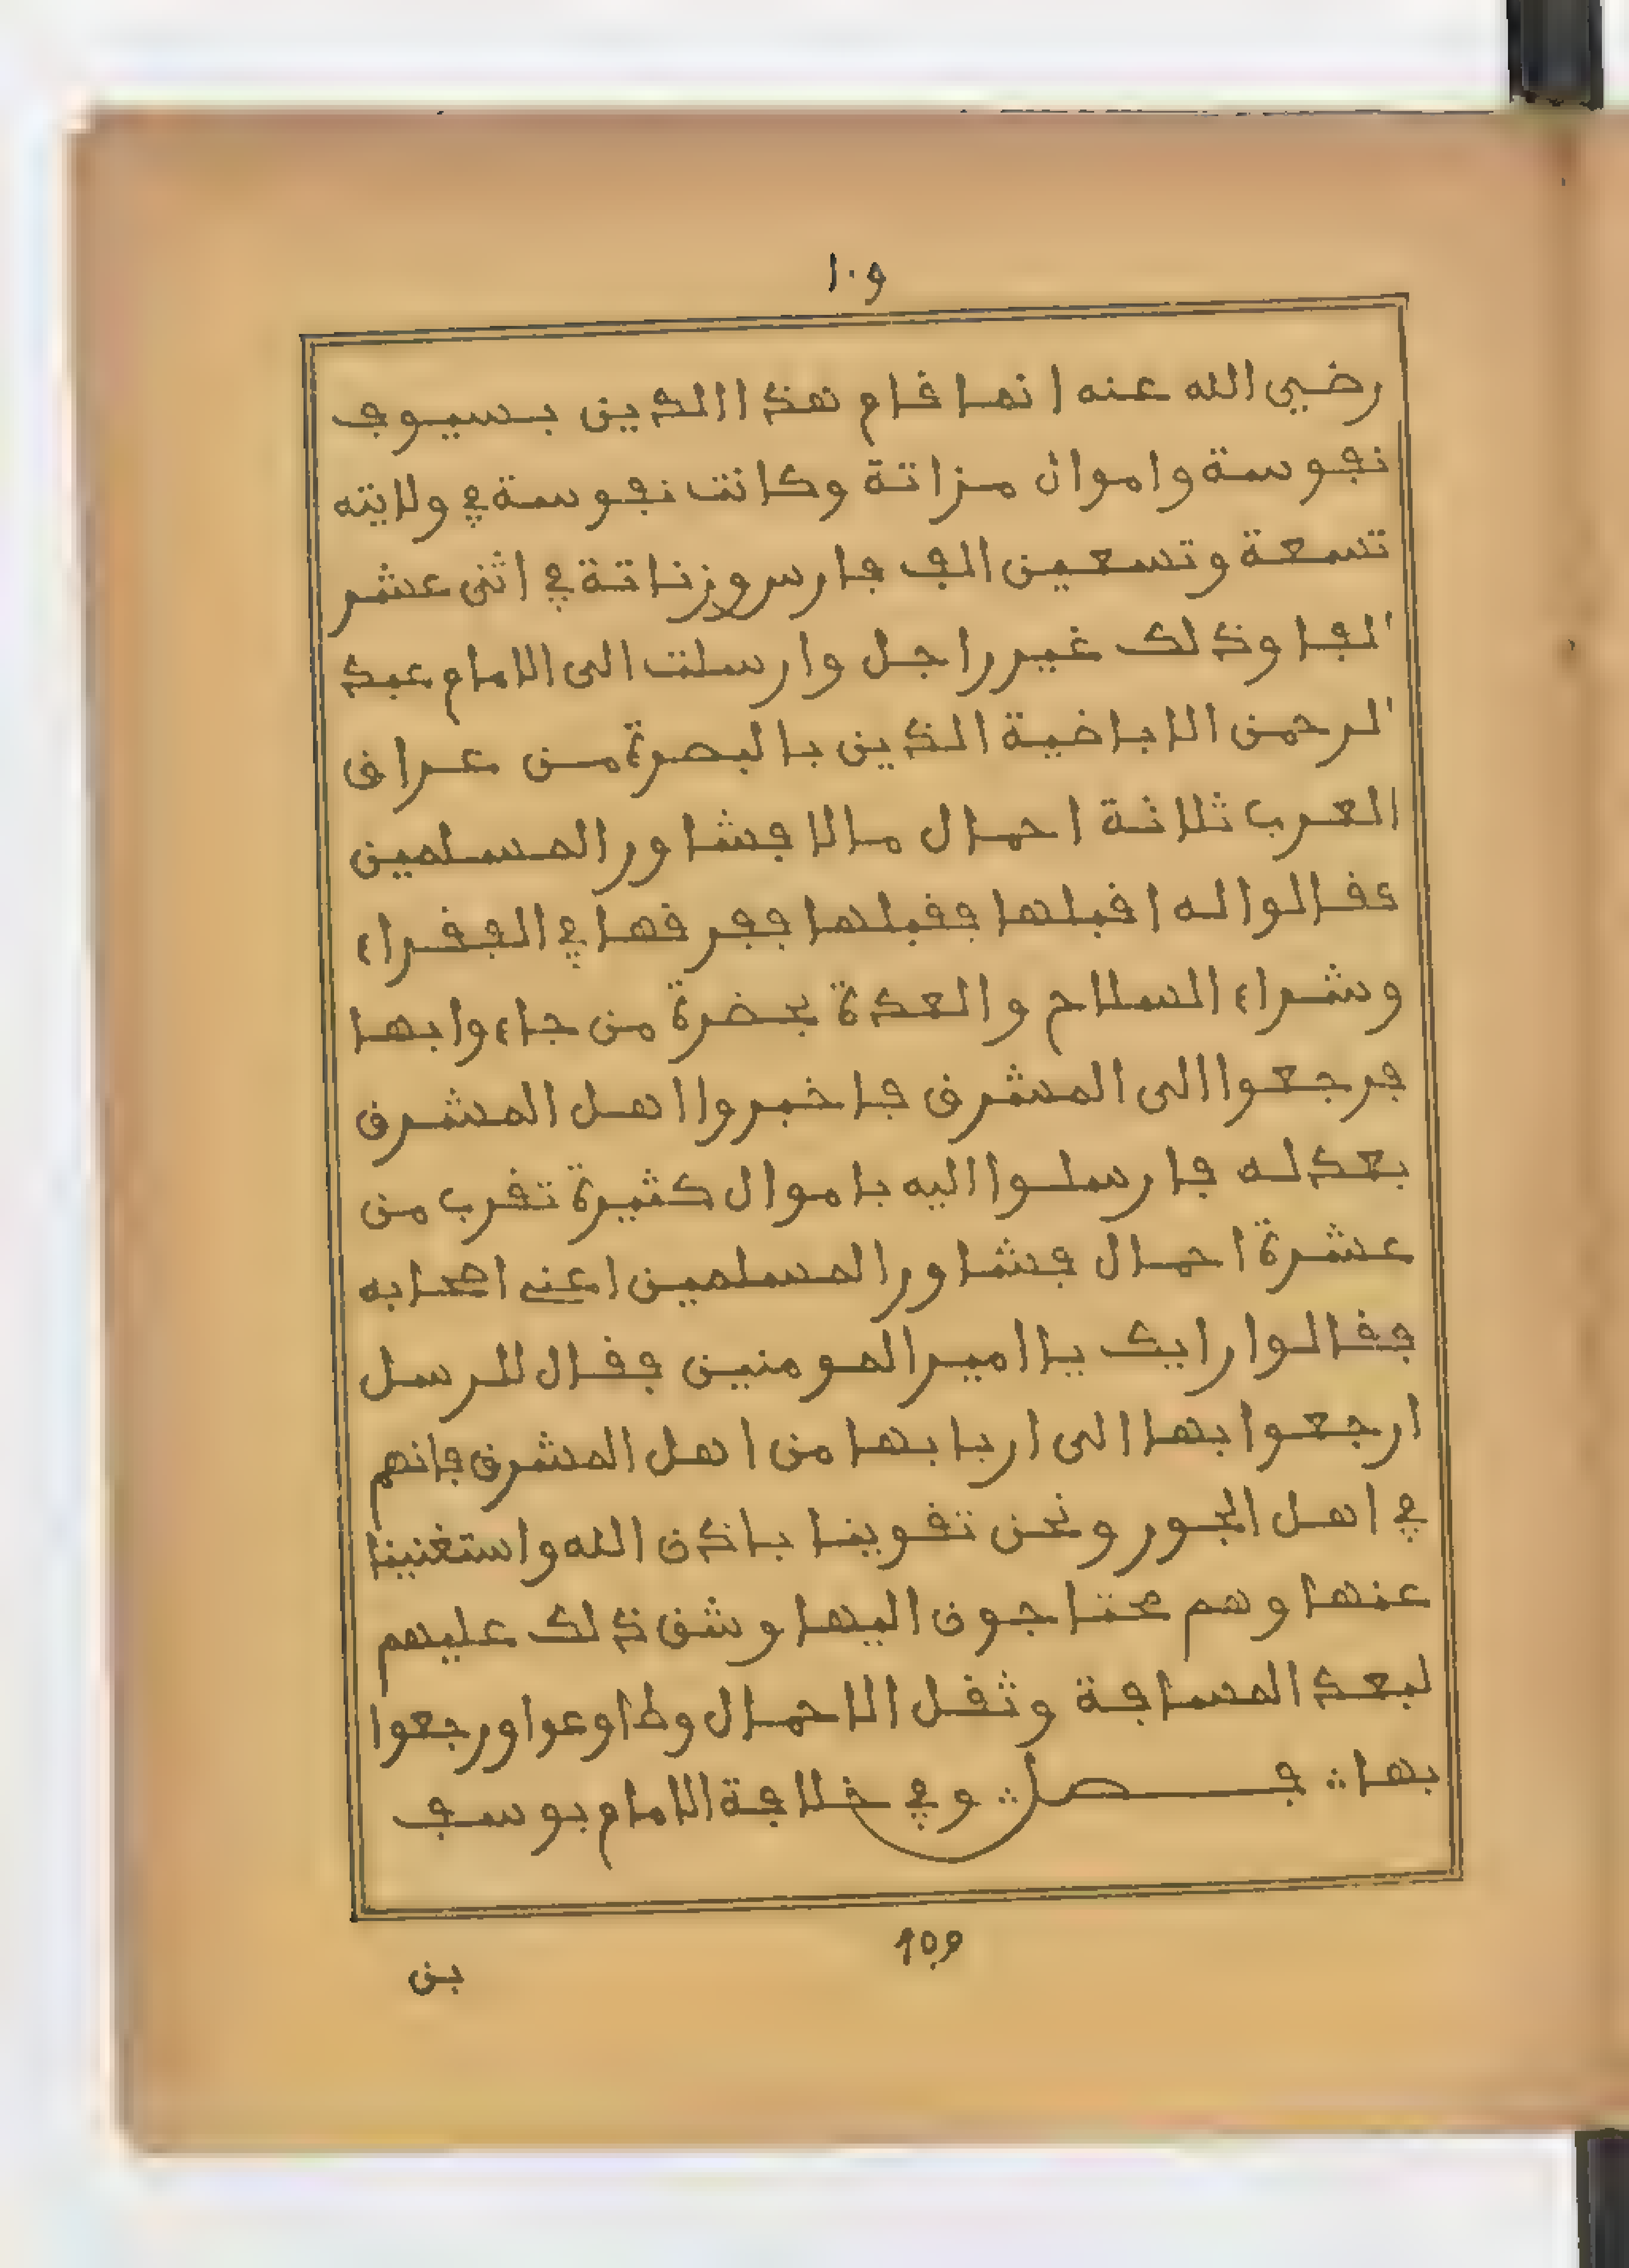 ١٠٩
رضي الله عنه انما قام هذا الدين بسيوف
نفوسة واموال مزاتة وكانت نفوسة في ولايته
تسعة وتسعين الف فارس وزناتة في اثنى عشر
الفا وذلك غير راجل وارسلت الى الامام عبد
الرحمن الاباضية الذين بالبصرة من عراق
العرب ثلاثة احمال مالا فشاور المسلمين
فقالوا له اقبلها فقبلها ففرقها في الفقراء
وشراء السلاح والعدة بحضرة من جاءوا بها
فرجعوا الى المشرق فاخبروا اهل المشرق
بعدله فارسلوا اليه باموال كثيرة تقرب من
عشرة احمال فشاور المسلمين اعني اصحابه
فقالوا رايك يا امير المومنين فقال للرسل
ارجعوا بها الى اربابها من اهل المشرق فانهم
في اهل الجور ونحن تقوينا باذن الله واستغنينا
عنها وهم محتاجون اليها وشق ذلك عليهم
لبعد المسافة وثقل الاحمال وطاوعوا ورجعوا
بها ؞ فصل ؞ وفي خلافة الامام يوسف
109
بن